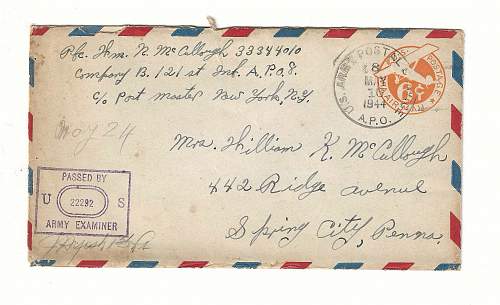 Pfc. Wm. N. McCullough 33344010
Company B. 121 st Inf. A.P.O. 8.
c/o Post Master New York, N.Y.
U.S. ARMY POSTAL
8
MAY
10
1944
A.P.O.
U.S. POSTAGE
6¢
AIR MAIL
May 24
Mrs. William K. McCullough
442 Ridge avenue
Spring City, Penna.
PASSED BY
U 22292 S
ARMY EXAMINER